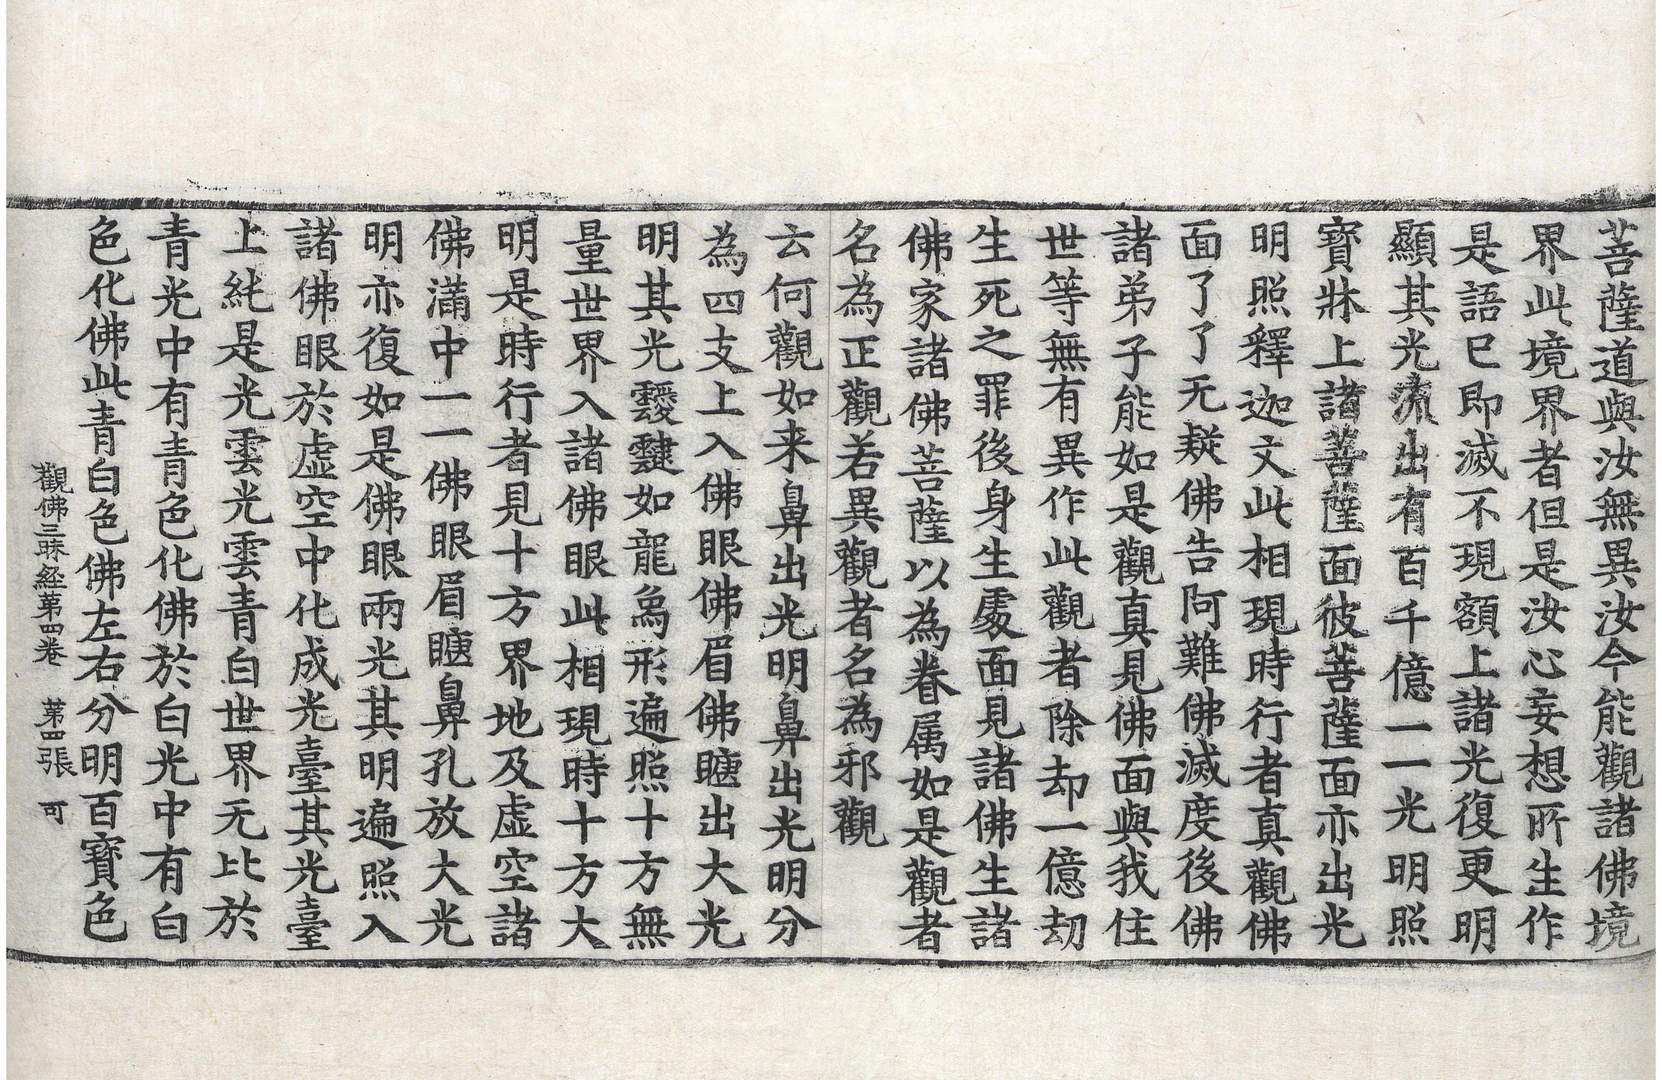 菩薩道與汝無異汝今能觀諸佛境
界此境界者但是汝心妄想所生作
是語已即滅不現額上諸光復更明
顯其光流出有百千億一一光明照
寶牀上諸菩薩面彼菩薩面亦出光
明照釋迦文此相現時行者真觀佛
面了了无疑佛告阿難佛滅度後佛
諸弟子能如是觀真見佛面與我住
世等無有異作此觀者除却一億劫
生死之罪後身生處面見諸佛生諸
佛家諸佛菩薩以為眷属如是觀者
名為正觀若異觀者名為邪觀
云何觀如来鼻出光明鼻出光明分
為四支上入佛眼佛眉佛䏶出大光
明其光靉靆如龍象形遍照十方無
量世界入諸佛眼此相現時十方大
明是時行者見十方界地及虛空諸
佛滿中一一佛眼眉䏶鼻孔放大光
明亦復如是佛眼兩光其明遍照入
諸佛眼於虛空中化成光臺其光臺
上純是光雲光雲青白世界无比於
青光中有青色化佛於白光中有白
色化佛此青白色佛左右分明百寶色
觀佛三昧經第四卷 第四張 可